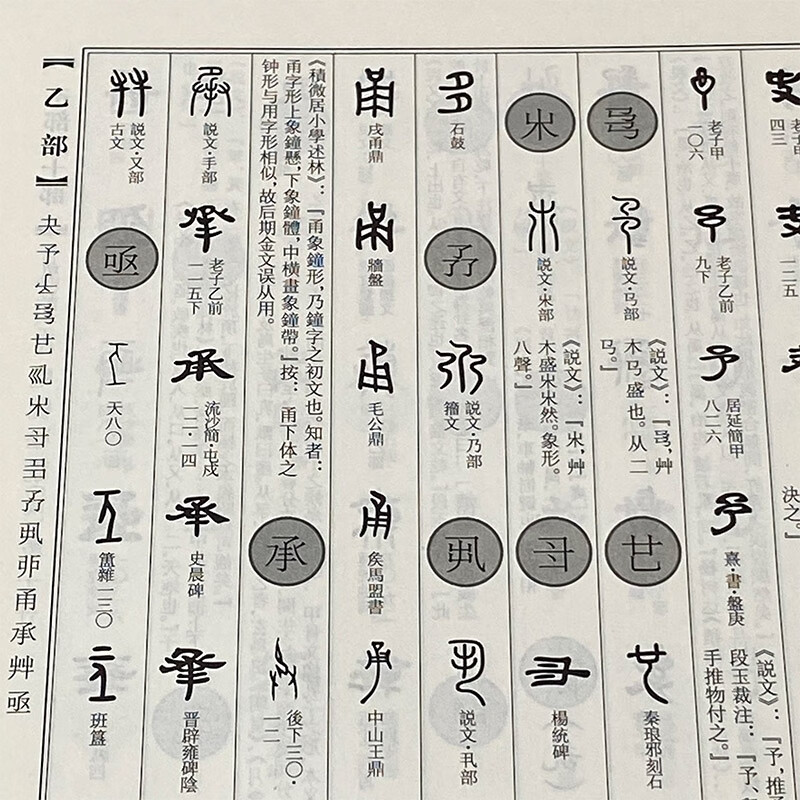 老子甲
四三
一二五
決之。』
老子甲
一〇六
老子乙前
九下
居延簡甲
八二六
熹·書·盤庚
《説文》：『予，推予
段玉裁注：『予、
手推物付之。』
説文·㔾部
《説文》：『
木
盛也。从二
。』
廿
秦琅邪刻石
𣎵
説文·𣎵部
《説文》：『𣎵，艸
木盛𣎵𣎵然。象形。
八聲。』
楊統碑
石鼓
説文·乃部
籀文
丮
説文·丮部
戍甬鼎
牆盤
毛公鼎
矦馬盟書
中山王鼎
《積微居小學述林》：『甬象鐘形，乃鐘字之初文也。知者：
甬字形上象鐘懸，下象鐘體，中横畫象鐘帶。』按： 甬下体之
钟形与用字形相似，故后期金文误从用。
承
後下三〇·
一二
説文·手部
老子乙前
一二五下
流沙簡·屯戍
一二·一四
史晨碑
晋辟雍碑陰
説文·又部
古文
亟
天八〇
簠雜一三〇
班簋
【乙部】
夬予廿𣎵丮甬承艸亟